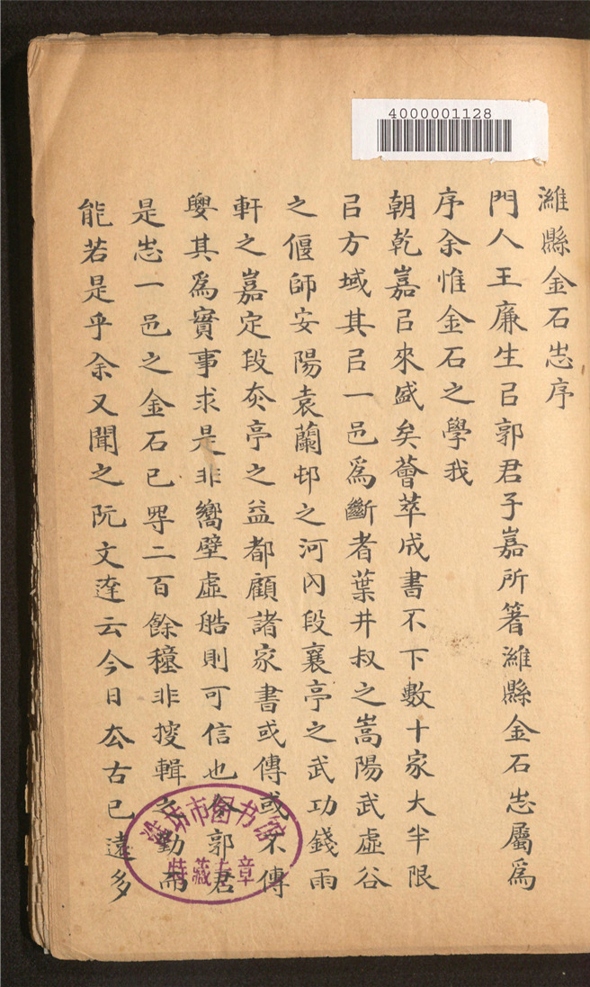 4000001128
濰縣金石志序
門人王廉生㠯郭君子嘉所箸濰縣金石志屬爲
序余惟金石之學我
朝乾嘉㠯來盛矣薈萃成書不下數十家大半限
㠯方域其㠯一邑爲斷者葉井叔之嵩陽武虛谷
之偃師安陽袁蘭邨之河內段襄亭之武功錢雨
軒之嘉定段赤亭之益都顧諸家書或傳或不傳
要其爲實事求是非嚮壁虛艁則可信也今郭君
是志一邑之金石已㝵二百餘穜非搜輯之勤而
能若是乎余又聞之阮文達云今日厺古已遠多
潍坊市图书馆
特藏专章